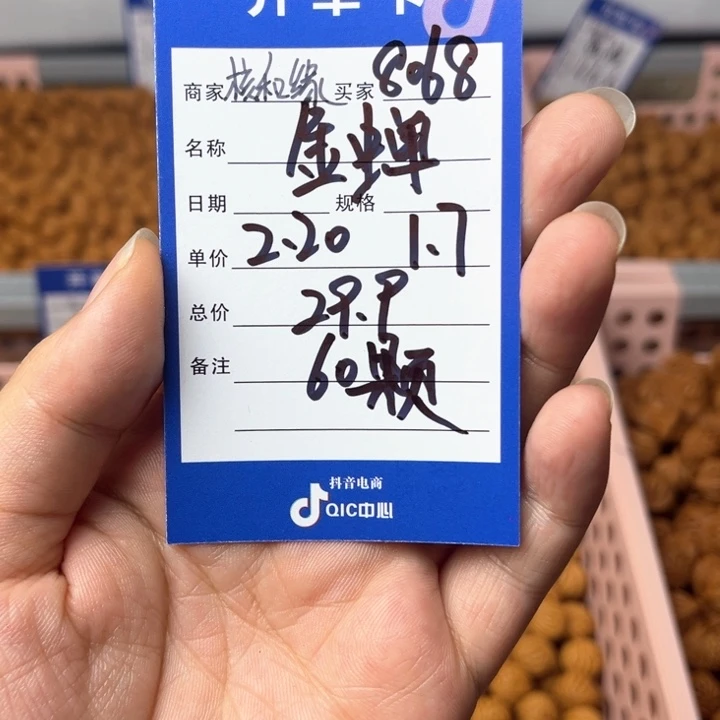 开单卡
商家 核和缘 买家 8068
名称 金蝉
日期 2.20 规格 1.7
单价
总价 29.9
备注 60颗
抖音电商
QIC中心